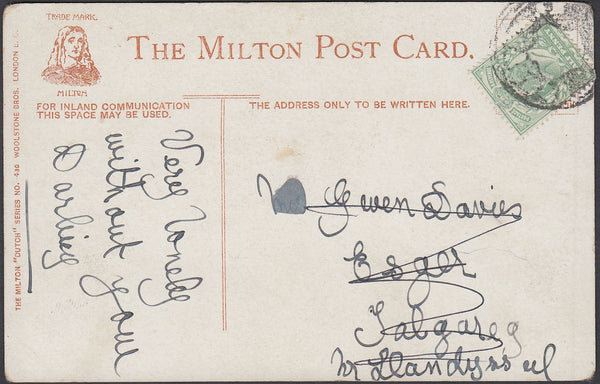 TRADE MARK.
MILTON
THE MILTON POST CARD.
FOR INLAND COMMUNICATION
THIS SPACE MAY BE USED.
THE ADDRESS ONLY TO BE WRITTEN HERE.
THE MILTON "DUTCH" SERIES NO. 439 WOOLSTONE BROS. LONDON E.C.
Very lonely
without your
Darling
Gwen Davies
Esger
Talgareg
Nr Llandyssul